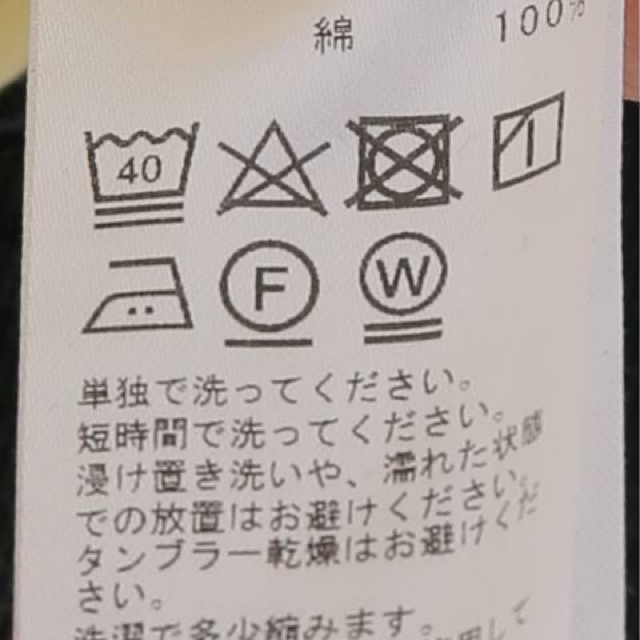 綿 100%
40
F W
単独で洗ってください。
短時間で洗ってください。
浸け置き洗いや、濡れた状態
での放置はお避けください。
タンブラー乾燥はお避けくだ
さい。
洗濯で多少縮みます。